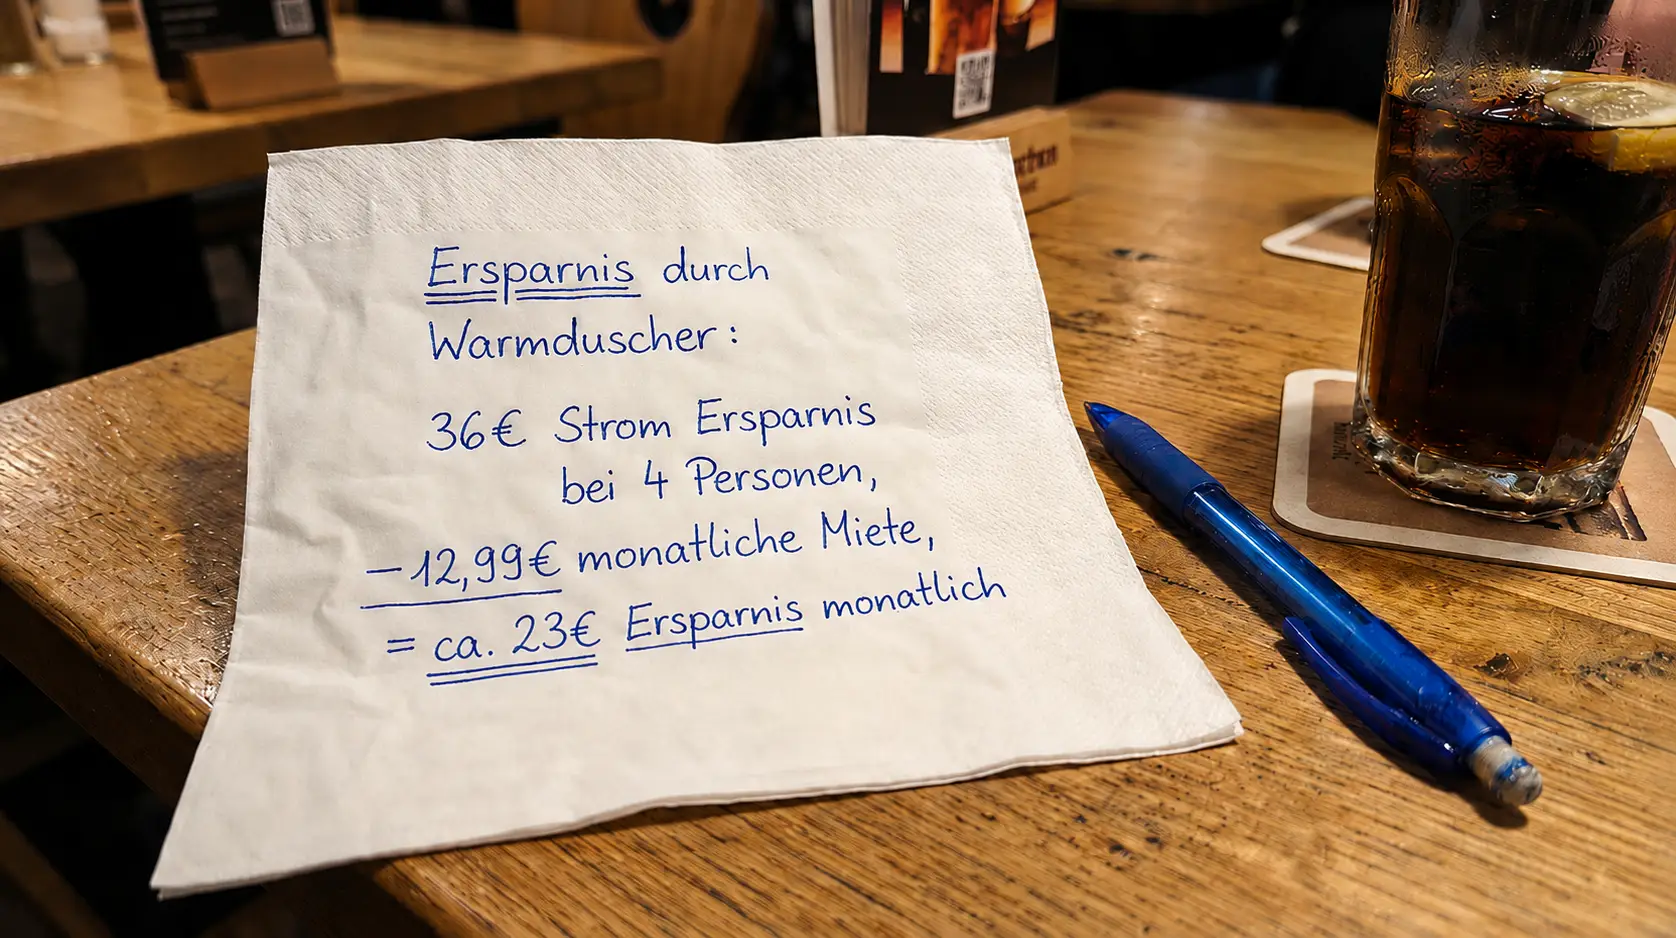 Ersparnis durch
Warmduscher:
36€ Strom Ersparnis
bei 4 Personen,
– 12,99€ monatliche Miete,
= ca. 23€ Ersparnis monatlich